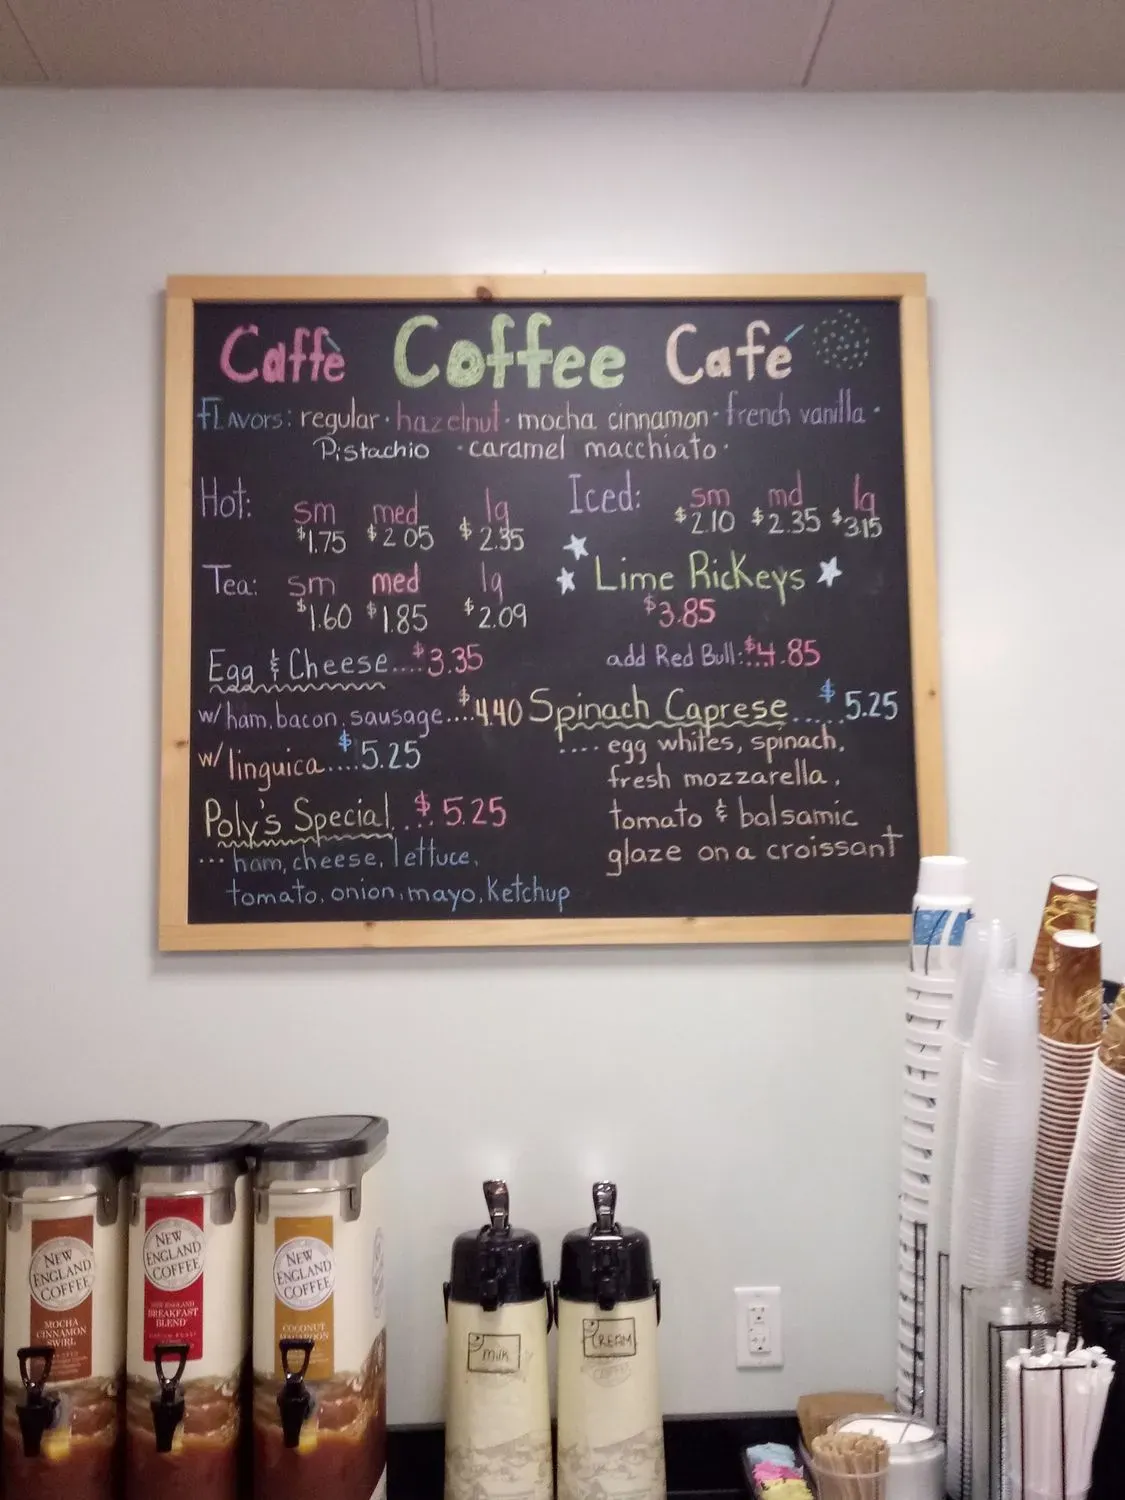 Caffè Coffee Café
FLAVORS: regular · hazelnut · mocha cinnamon · french vanilla ·
Pistachio · caramel macchiato ·
Hot: sm med lg
$1.75 $2.05 $2.35
Iced: sm md lg
$2.10 $2.35 $3.15
Tea: sm med lg
$1.60 $1.85 $2.09
Lime Rickeys
$3.85
add Red Bull:$4.85
Egg & Cheese....$3.35
w/ham, bacon, sausage....$4.40
w/linguica....$5.25
Poly's Special....$5.25
...ham, cheese, lettuce,
tomato, onion, mayo, Ketchup
Spinach Caprese.....$5.25
....egg whites, spinach,
fresh mozzarella,
tomato & balsamic
glaze on a croissant
NEW
ENGLAND
COFFEE
MOCHA
CINNAMON
SWIRL
NEW
ENGLAND
COFFEE
NEW ENGLAND
BREAKFAST
BLEND
NEW
ENGLAND
COFFEE
COCONUT
MACAROON
MILK
CREAM